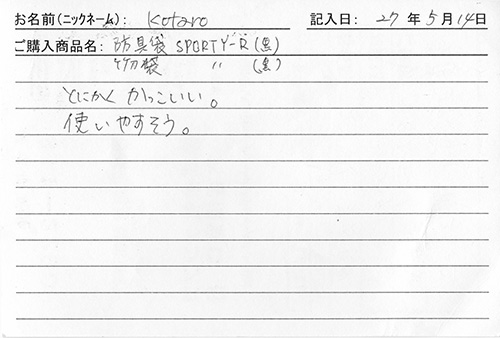 お名前(ニックネーム): kotaro 記入日: 27 年 5 月 14 日
ご購入商品名: 防具袋 SPORTY-R (黒)
竹刀袋 〃 (黒)
とにかく かっこいい。
使いやすそう。